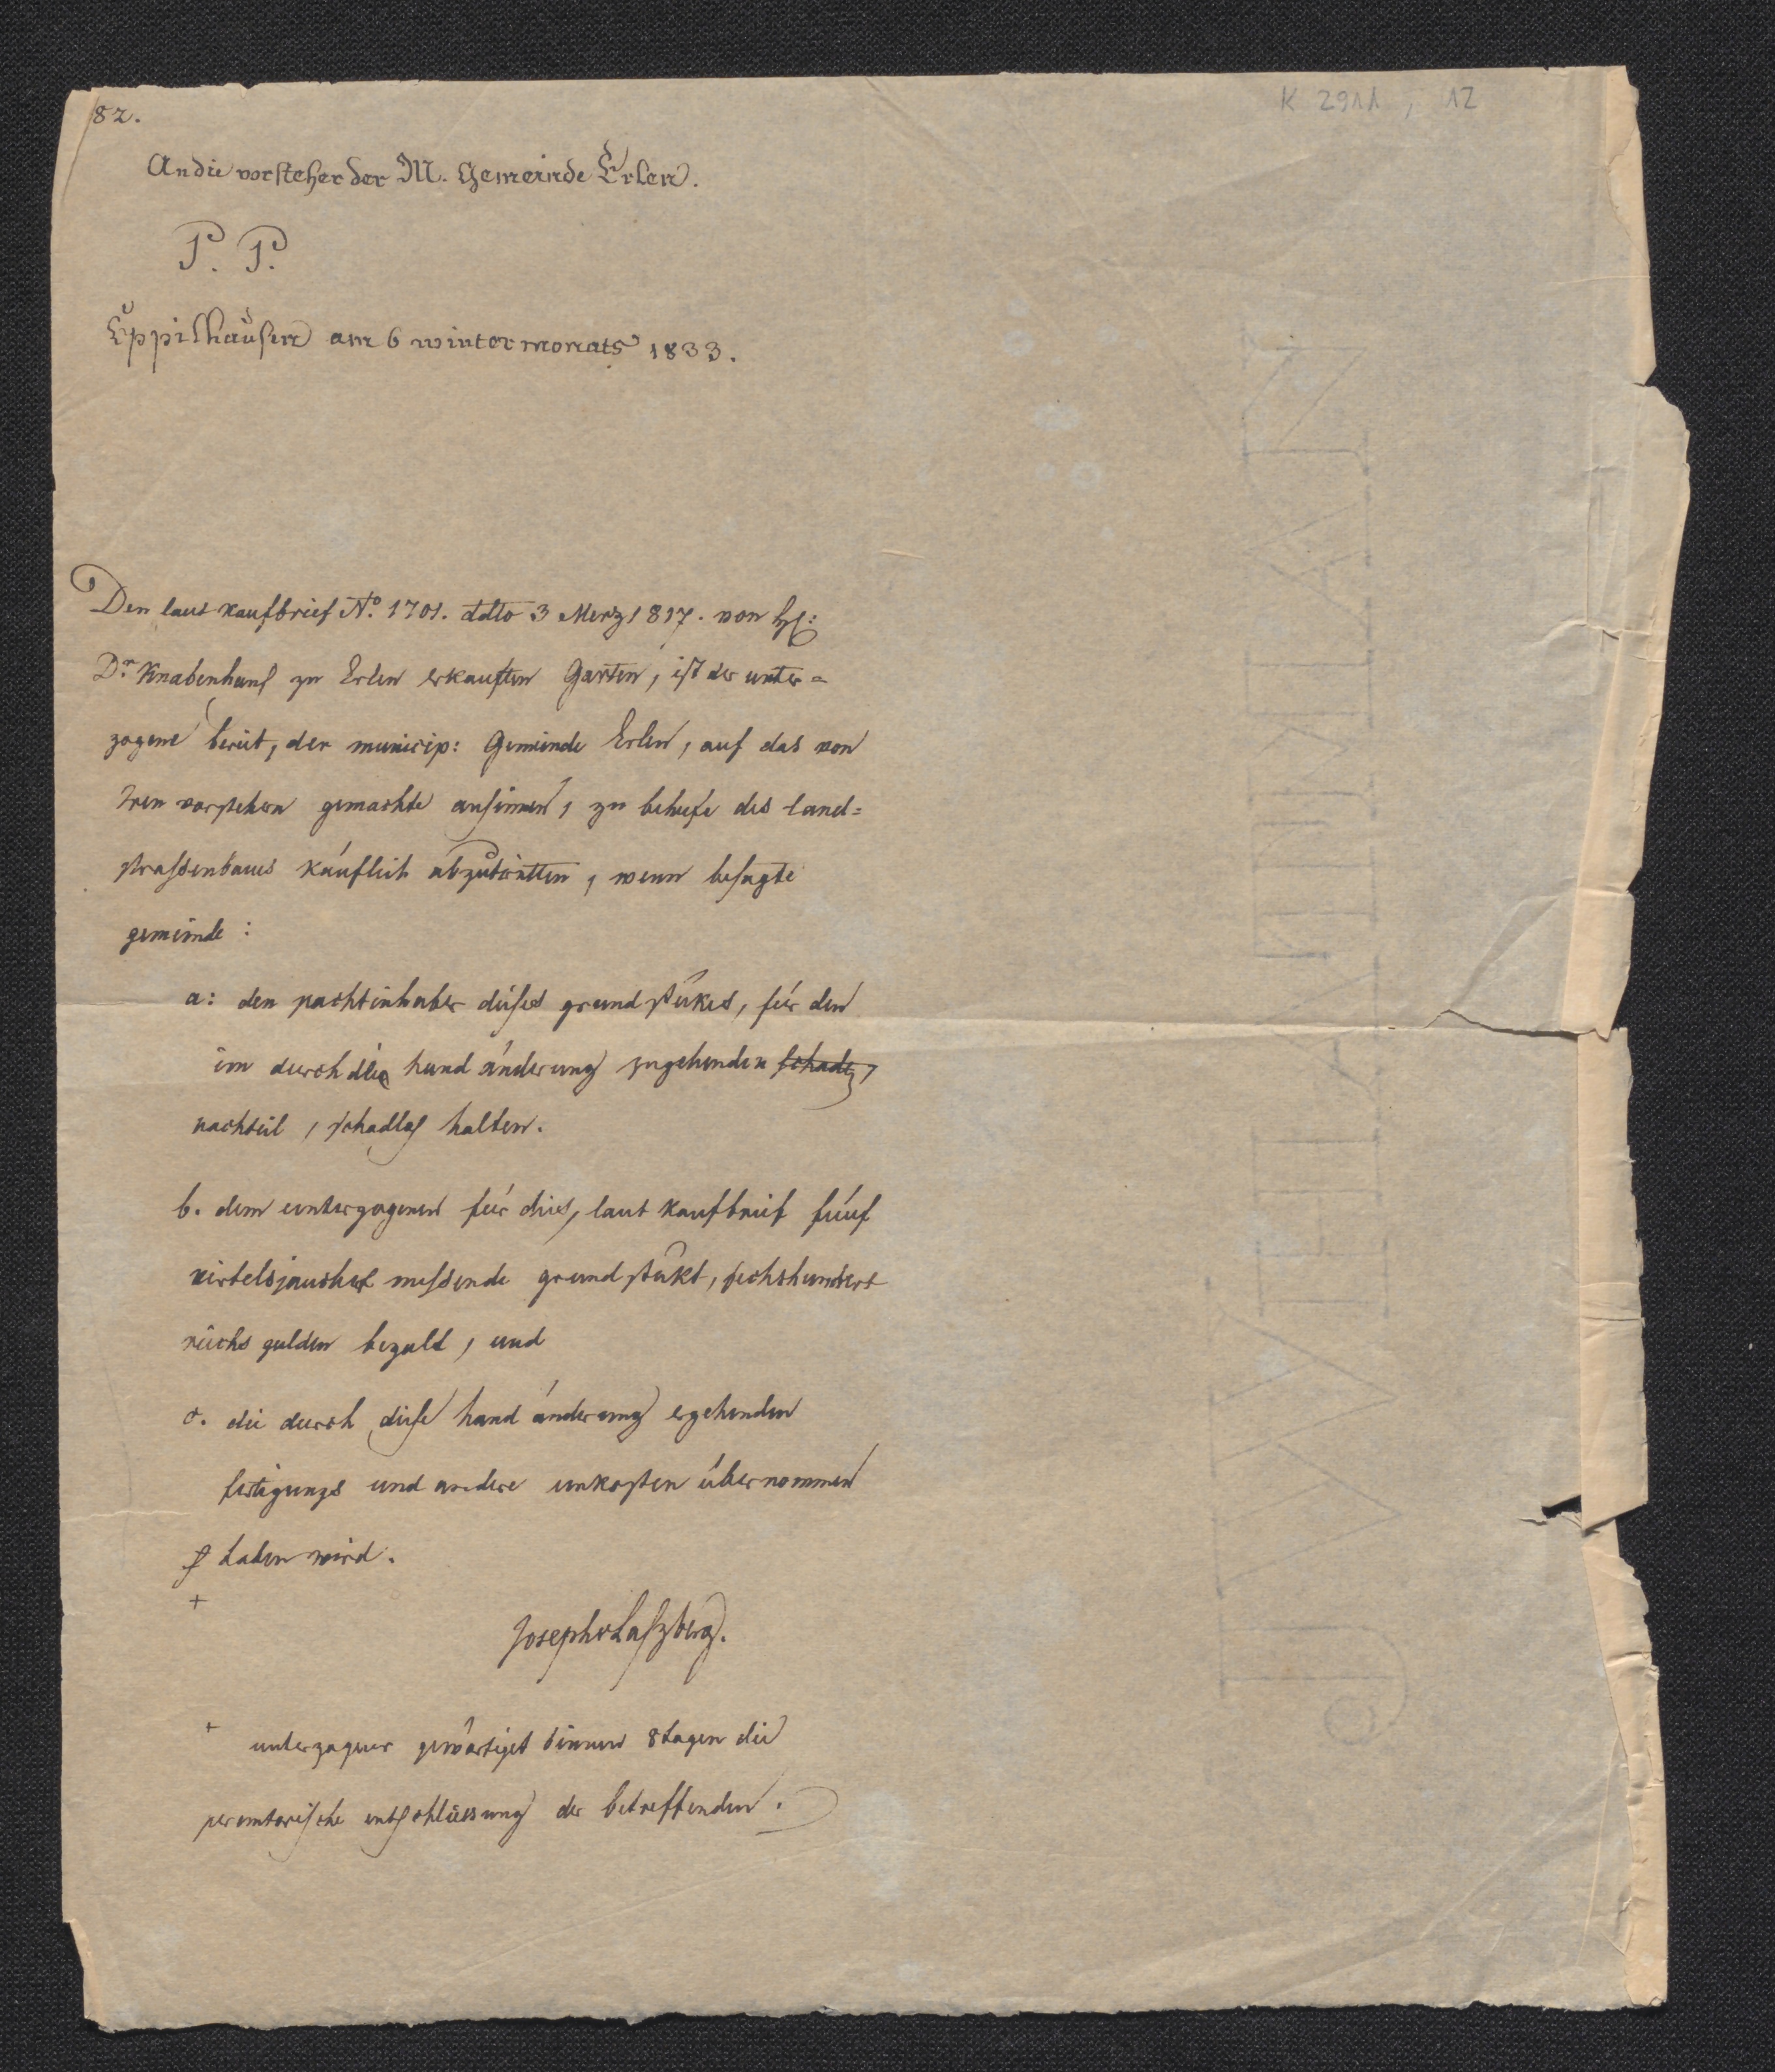 82.
K 2911, 12
An die vorsteher der M. Gemeinde Erlen.
P. P.
Eppishausen am 6 wintermonats 1833.
Den laut kaufbrief No. 1701. ddto 3 Merz 1817. von
Dr. Knabenhans zu Erlen erkauften Garten, ist der unter=
zogene bereit, der municip: Gemeinde Erlen, auf das von
iren vorstehern gemachte ansinnen, zu behufe des land=
strassenbaues käuflich abzutretten, wenn besagte
gemeinde:
a: den pachtinhaber dieses grundstükes, für den
im durch die hand änderung zugehenden schade,
nachteil, schadlos halten.
b. dem unterzogenen für dies, laut kaufbrief fünf
viertelsjauchert messende grundstükt, sechshundert
reichs gulden bezalt, und
c. die durch diese hand änderung ergehenden
fertigungs und andere unkosten übernommen
haben wird.
+
Joseph v Laszberg.
+ unterzogner gewärtiget binnen 8 tagen die
peremtorische entschliessung der betreffenden.